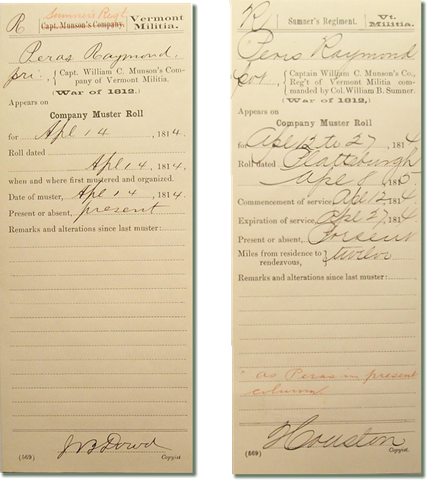 Sumner's Regt
R
Capt. Munson's Company.
Vermont
Militia.
Peras Raymond,
pri.
Capt. William C. Munson's Com-
pany of Vermont Militia.
(War of 1812.)
Appears on
Company Muster Roll
for Apl 14, 1814.
Roll dated
Apl 14, 1814.
when and where first mustered and organized.
Date of muster, Apl 14, 1814.
Present or absent, present
Remarks and alterations since last muster:
J B Dowd
(569)
Copyist.
R
Sumner's Regiment.
Vt.
Militia.
Peris Raymond
Captain William C. Munson's Co.,
Reg't of Vermont Militia com-
manded by Col. William B. Sumner.
(War of 1812.)
Appears on
Company Muster Roll
for Apl 12 to 27, 1814
Roll dated Plattsburgh
Apl 8, 1815
Commencement of service, Apl 12, 1814
Expiration of service, Apl 27, 1814
Present or absent, Present
Miles from residence to
rendezvous,
twelve
Remarks and alterations since last muster:
as Peras in present
column.
Houston
(569)
Copyist.